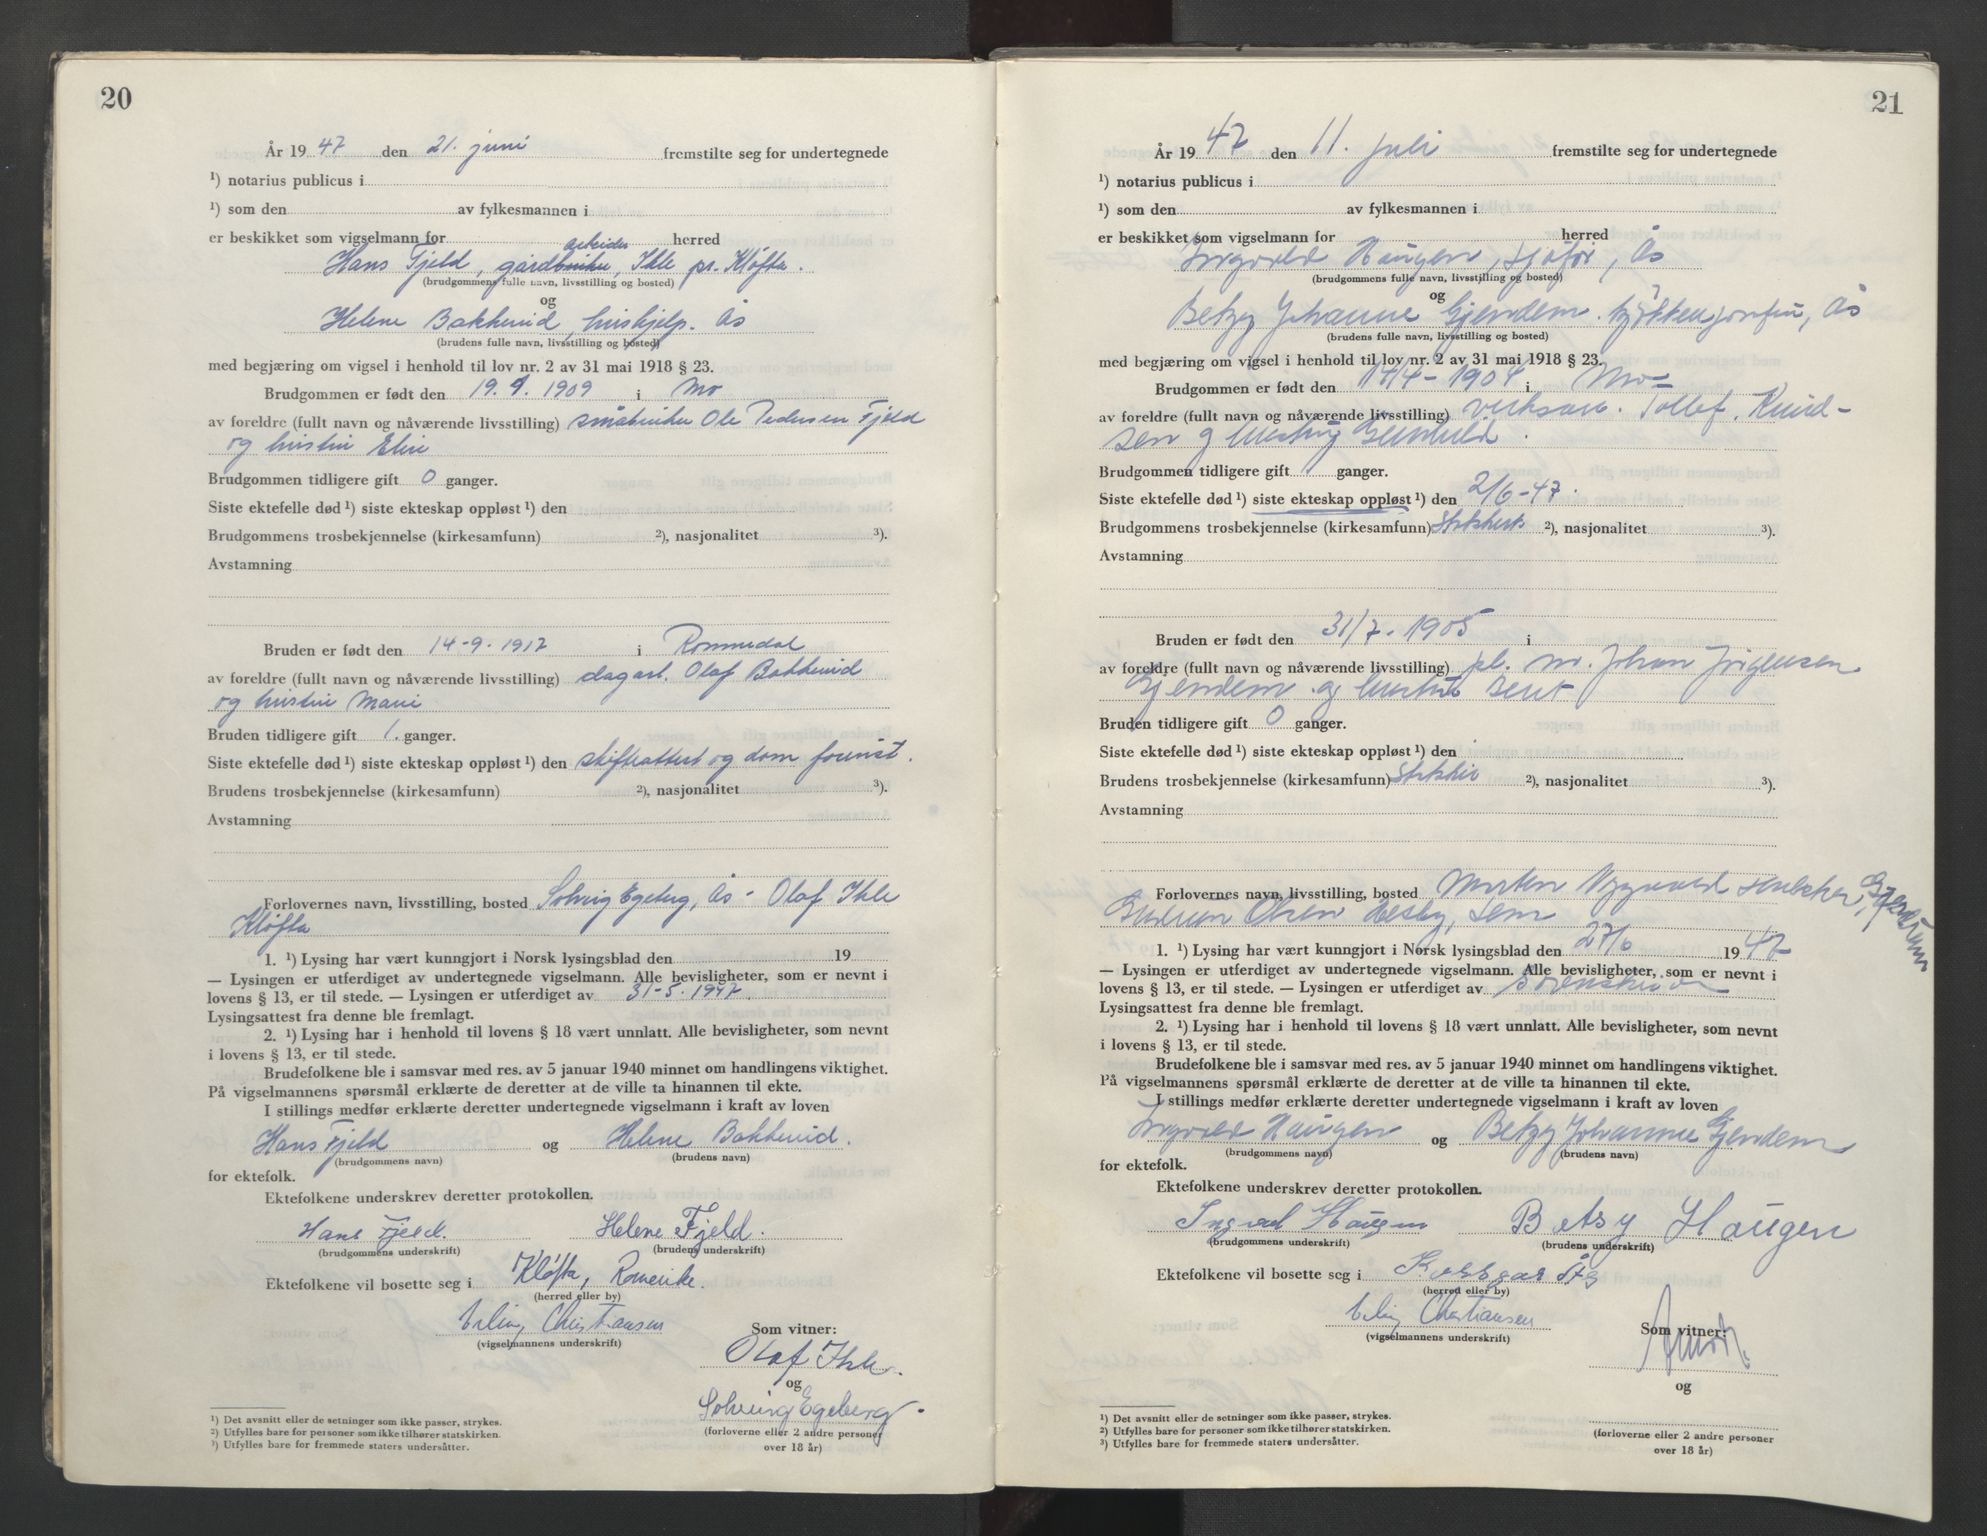 20
År 19 47 den 21. juni fremstilte seg for undertegnede
¹) notarius publicus i
¹) som den av fylkesmannen i
er beskikket som vigselmann for herred
arbeider
Hans Fjeld, gårdbruker, Ihle pr. Kløfta.
(brudgommens fulle navn, livsstilling og bosted)
og
Helene Bakkerud, hushjelp. Ås
(brudens fulle navn, livsstilling og bosted)
med begjæring om vigsel i henhold til lov nr. 2 av 31 mai 1918 § 23.
Brudgommen er født den 19. 9. 1909 i Mo
av foreldre (fullt navn og nåværende livsstilling) småbruker Ole Pedersen Fjeld
og hustru Eline
Brudgommen tidligere gift 0 ganger.
Siste ektefelle død ¹) siste ekteskap oppløst ¹) den
Brudgommens trosbekjennelse (kirkesamfunn) ²), nasjonalitet ³).
Avstamning
Bruden er født den 14-9. 1917 i Romedal
av foreldre (fullt navn og nåværende livsstilling) dagarb. Olaf Bakkerud
og hustru Marie
Bruden tidligere gift 1. ganger.
Siste ektefelle død ¹) siste ekteskap oppløst ¹) den skifteattest og dom forevist.
Brudens trosbekjennelse (kirkesamfunn) ²), nasjonalitet ³).
Avstamning
Forlovernes navn, livsstilling, bosted Solveig Egeberg, Ås - Olaf Ihle
Kløfta
1. ¹) Lysing har vært kunngjort i Norsk lysingsblad den 19
— Lysingen er utferdiget av undertegnede vigselmann. Alle bevisligheter, som er nevnt i
lovens § 13, er til stede. — Lysingen er utferdiget av 31-5. 1947.
Lysingsattest fra denne ble fremlagt.
2. ¹) Lysing har i henhold til lovens § 18 vært unnlatt. Alle bevisligheter, som nevnt
i lovens § 13, er til stede.
Brudefolkene ble i samsvar med res. av 5 januar 1940 minnet om handlingens viktighet.
På vigselmannens spørsmål erklærte de deretter at de ville ta hinannen til ekte.
I stillings medfør erklærte deretter undertegnede vigselmann i kraft av loven
Hans Fjeld og Helene Bakkerud.
(brudgommens navn) (brudens navn)
for ektefolk.
Ektefolkene underskrev deretter protokollen.
Hans Fjeld. Helene Fjeld.
(brudgommens underskrift) (brudens underskrift)
Ektefolkene vil bosette seg i Kløfta, Romerike.
(herred eller by)
Erling Christiansen
(vigselmannens underskrift)
Som vitner:
Olaf Ihle.
og
Solveig Egeberg.
(forloverne eller 2 andre personer
over 18 år)
¹) Det avsnitt eller de setninger som ikke passer, strykes.
²) Utfylles bare for personer som ikke tilhører statskirken.
³) Utfylles bare for fremmede staters undersåtter.
21
År 19 47 den 11. juli fremstilte seg for undertegnede
¹) notarius publicus i
¹) som den av fylkesmannen i
er beskikket som vigselmann for herred
Ingvald Haugen, sjåfør, Ås
(brudgommens fulle navn, livsstilling og bosted)
og
Betzy Johanne Gjendem. kjøkkenjomfru, Ås
(brudens fulle navn, livsstilling og bosted)
med begjæring om vigsel i henhold til lov nr. 2 av 31 mai 1918 § 23.
Brudgommen er født den 14/4 - 1904 i Mo-
av foreldre (fullt navn og nåværende livsstilling) Tollef. Knud-
sen og hustru Gunhild.
Brudgommen tidligere gift 1 ganger.
Siste ektefelle død ¹) siste ekteskap oppløst ¹) den 2/6-47.
Brudgommens trosbekjennelse (kirkesamfunn) ²), nasjonalitet ³).
Avstamning
Bruden er født den 31/7. 1905 i
av foreldre (fullt navn og nåværende livsstilling) Johan Jørgensen
Gjendem og hustru
Bruden tidligere gift 0 ganger.
Siste ektefelle død ¹) siste ekteskap oppløst ¹) den
Brudens trosbekjennelse (kirkesamfunn) ²), nasjonalitet ³).
Avstamning
Forlovernes navn, livsstilling, bosted Morten
Gudrun Olsen Hesby, Sem
1. ¹) Lysing har vært kunngjort i Norsk lysingsblad den 27/6 19 47
— Lysingen er utferdiget av undertegnede vigselmann. Alle bevisligheter, som er nevnt i
lovens § 13, er til stede. — Lysingen er utferdiget av sorenskriver
Lysingsattest fra denne ble fremlagt.
2. ¹) Lysing har i henhold til lovens § 18 vært unnlatt. Alle bevisligheter, som nevnt
i lovens § 13, er til stede.
Brudefolkene ble i samsvar med res. av 5 januar 1940 minnet om handlingens viktighet.
På vigselmannens spørsmål erklærte de deretter at de ville ta hinannen til ekte.
I stillings medfør erklærte deretter undertegnede vigselmann i kraft av loven
Ingvald Haugen og Betzy Johanne Gjendem
(brudgommens navn) (brudens navn)
for ektefolk.
Ektefolkene underskrev deretter protokollen.
Ingvald Haugen Betsy Haugen
(brudgommens underskrift) (brudens underskrift)
Ektefolkene vil bosette seg i
(herred eller by)
Erling Christiansen
(vigselmannens underskrift)
Som vitner:
og
(forloverne eller 2 andre personer
over 18 år)
¹) Det avsnitt eller de setninger som ikke passer, strykes.
²) Utfylles bare for personer som ikke tilhører statskirken.
³) Utfylles bare for fremmede staters undersåtter.